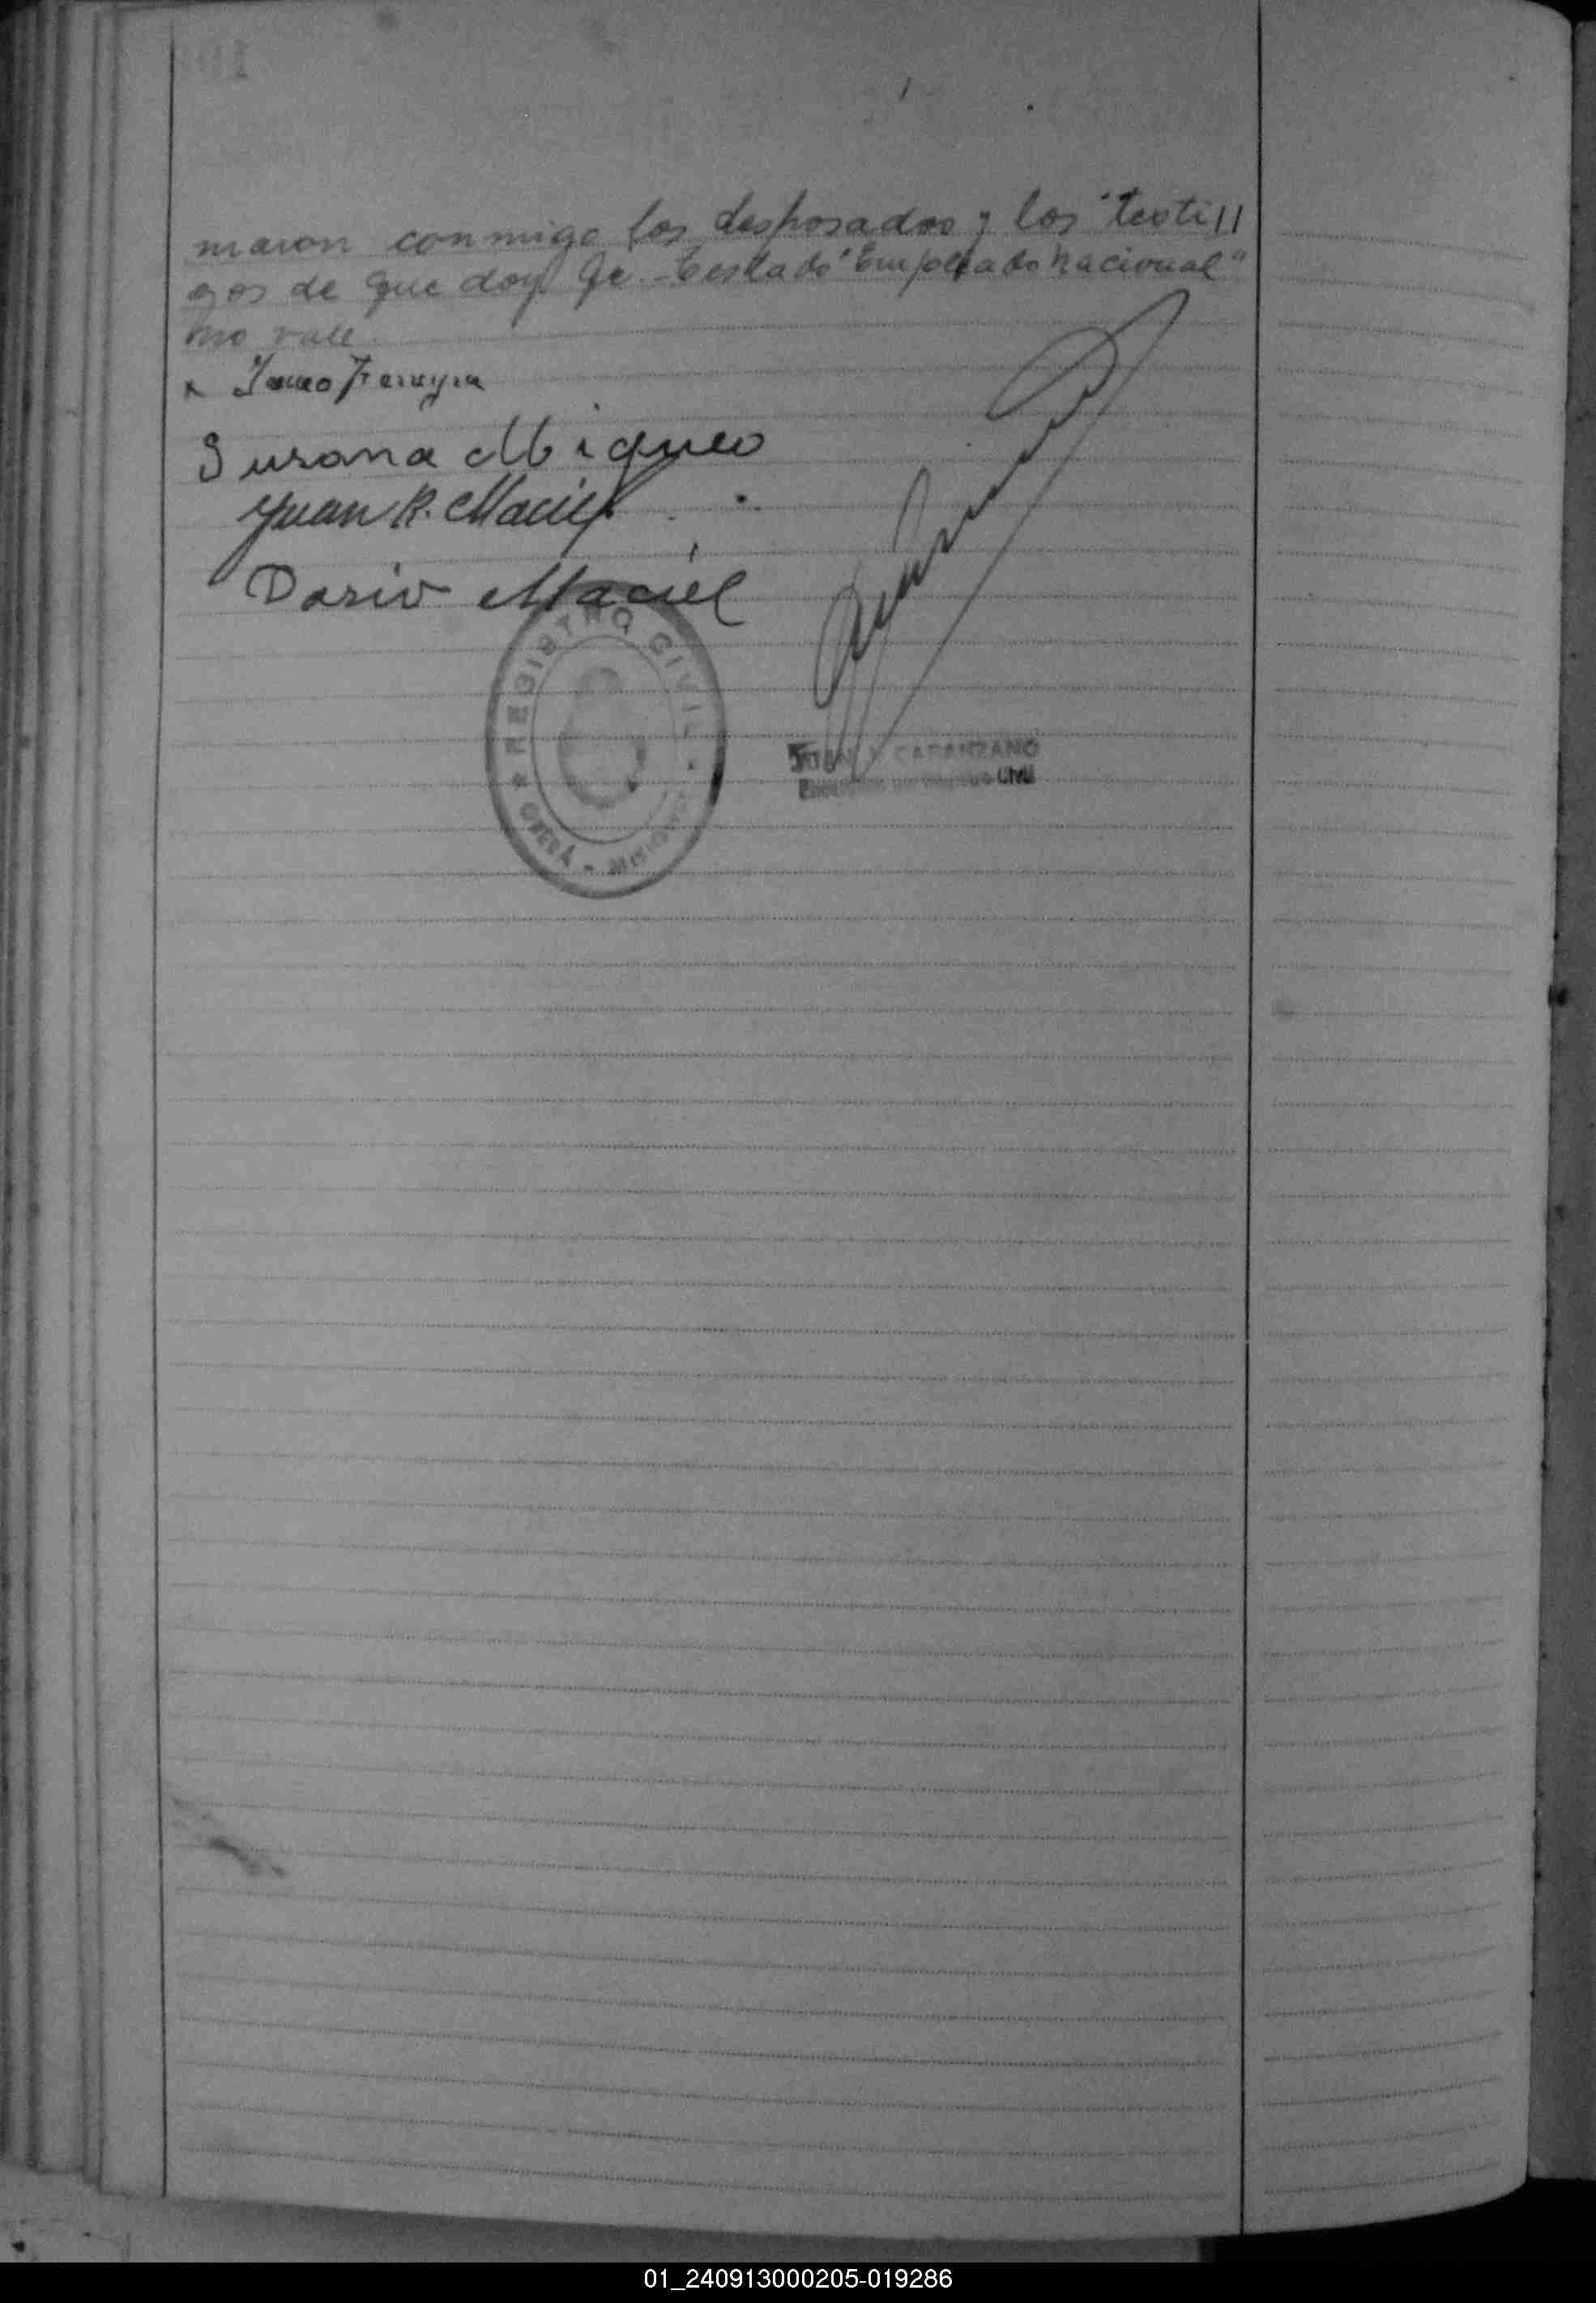 maron conmigo los desposados y los testi//
gos de que doy fe.- Testado "Empleado Nacional"
no vale.
x Ferreyra
Susana Miqueo
Juan R. Maciel
Dario Maciel
REGISTRO CIVIL
OBERÁ - MISIONES
CATANZANO
Encargado del Registro Civil
01_240913000205-019286